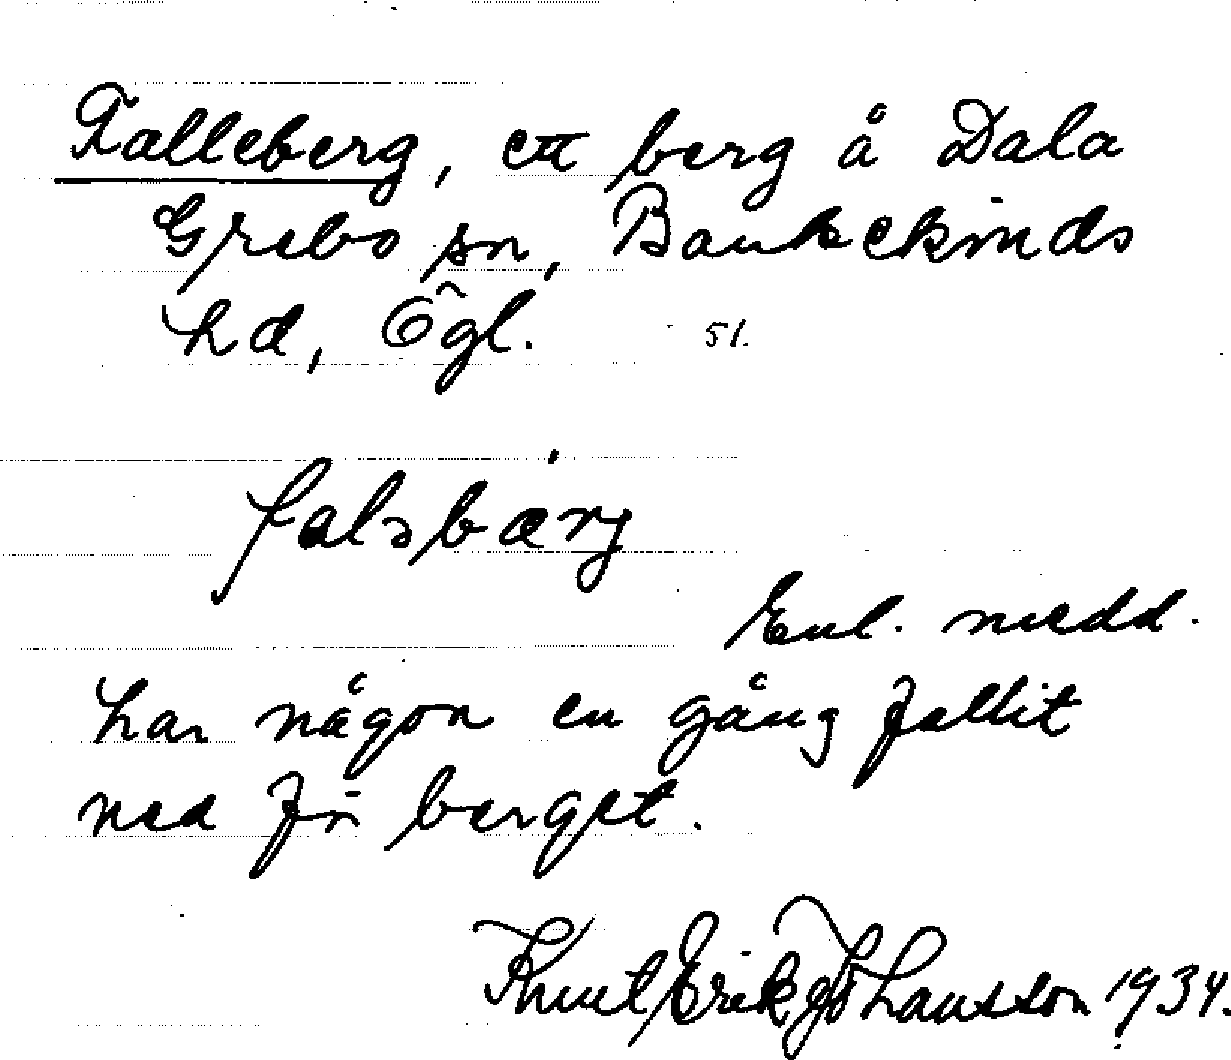 Falleberg, ett berg å Dala
Grebo sn, Bankekinds
hd, Ögl. 51.
falsbærj
Enl. medd.
har någon en gång fallit
ned för berget.
Knut Erik Johansson 1934.